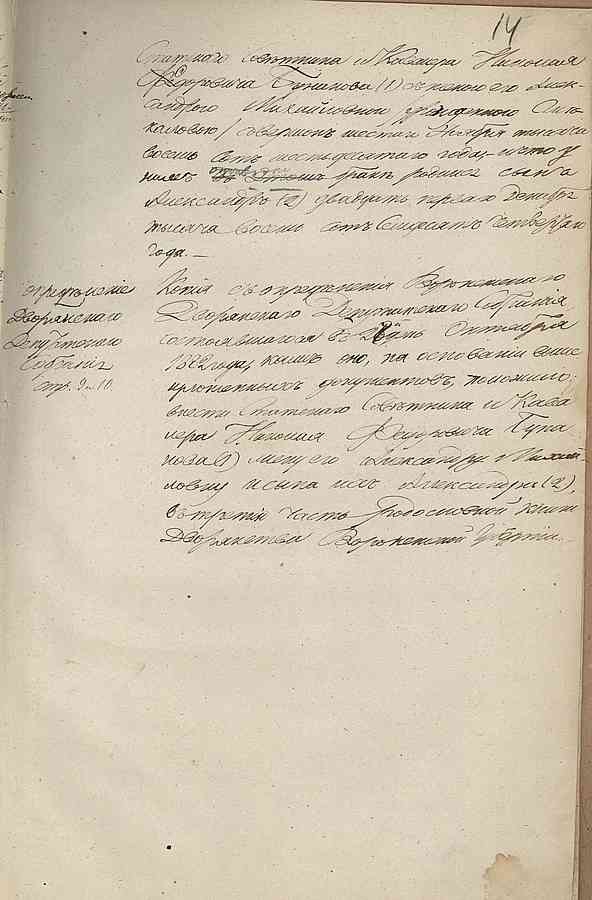 14
Статского Совѣтника и Кавалера Николая
Ѳедоровича Бунакова (1) съ женою его Алек-
сандрою Михайловною, урожденною
совершенъ шестаго Октября тысяча
восемь сотъ шестьдесятаго года, и что у
нихъ бракѣ родился сынъ
Александръ (2) двадцать Декабря
тысяча восемь сотъ семьдесятъ четвертаго
года. —
Опредѣленіе
Дворянскаго
Депутатскаго
Собранія
стр. 9 и 10.
Копія съ опредѣленія Воронежскаго
Дворянскаго Депутатскаго Собранія
состоявшагося въ день Октября
1882 года, каковое оно, на основаніи выше
изложенныхъ документовъ, положило:
внести Статскаго Совѣтника и Кава
лера Николая Ѳедоровича Буна
кова (1) жену его Александру Михай
ловну и сына ихъ Александра (2),
въ третію часть Родословной книги
Дворянства Воронежской Губерніи. —